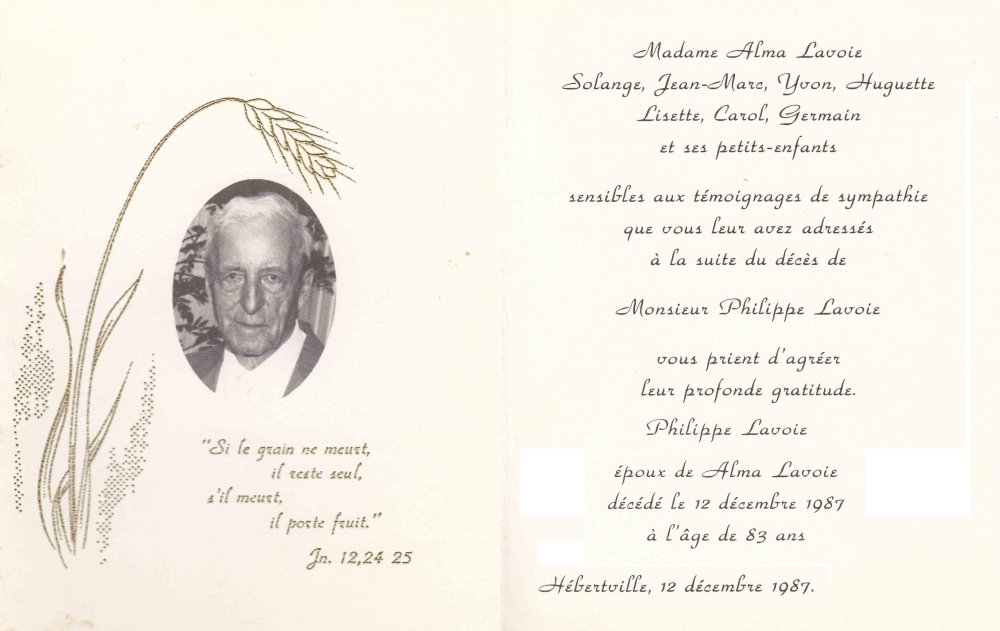 "Si le grain ne meurt,
il reste seul,
s'il meurt,
il porte fruit."
Jn. 12,24 25
Madame Alma Lavoie
Solange, Jean-Marc, Yvon, Huguette
Lisette, Carol, Germain
et ses petits-enfants
sensibles aux témoignages de sympathie
que vous leur avez adressés
à la suite du décès de
Monsieur Philippe Lavoie
vous prient d'agréer
leur profonde gratitude.
Philippe Lavoie
époux de Alma Lavoie
décédé le 12 décembre 1987
à l'âge de 83 ans
Hébertville, 12 décembre 1987.